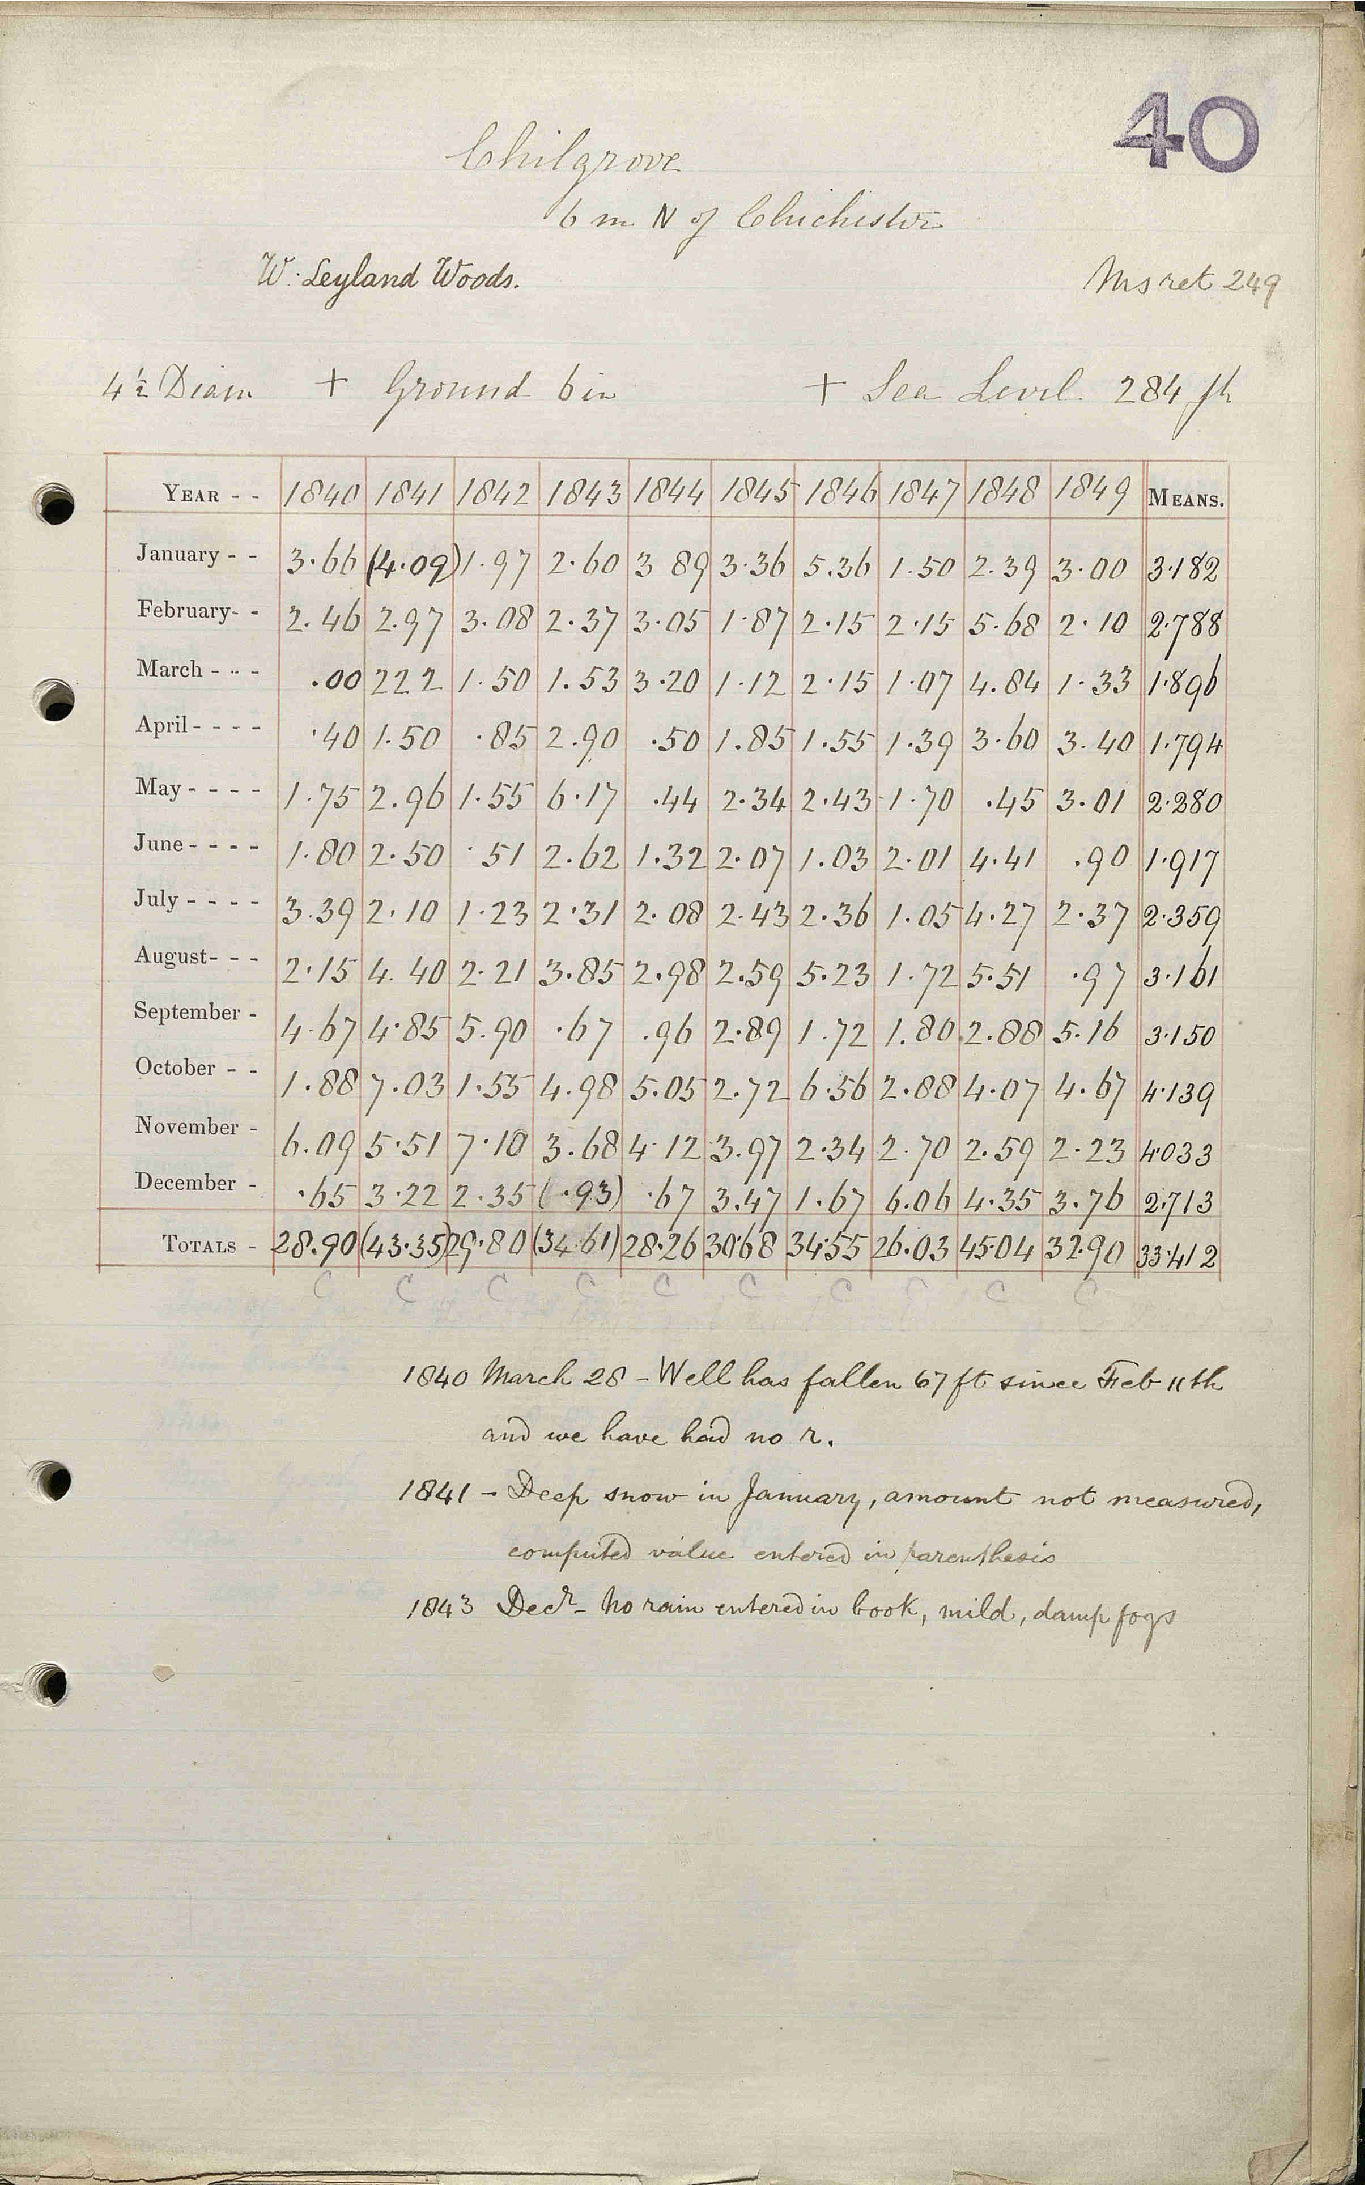 40
Chilgrove
6 m N of Chichester
W. Leyland Woods.
Ms ret 249
4½ Diam + Ground 6 in + Sea Level 284 ft
YEAR - - 1840 1841 1842 1843 1844 1845 1846 1847 1848 1849 MEANS.
January - - 3.66 (4.09) 1.97 2.60 3 89 3.36 5.36 1.50 2.39 3.00 3.182
February- - 2.46 2.97 3.08 2.37 3.05 1.87 2.15 2.15 5.68 2.10 2.788
March - - - .00 2 2 2 1.50 1.53 3.20 1.12 2.15 1.07 4.84 1.33 1.896
April - - - - .40 1.50 .85 2.90 .50 1.85 1.55 1.39 3.60 3.40 1.794
May - - - - 1.75 2.96 1.55 6.17 .44 2.34 2.43 1.70 .45 3.01 2.280
June - - - - 1.80 2.50 .51 2.62 1.32 2.07 1.03 2.01 4.41 .90 1.917
July - - - - 3.39 2.10 1.23 2.31 2.08 2.43 2.36 1.05 4.27 2.37 2.359
August- - - 2.15 4.40 2.21 3.85 2.98 2.59 5.23 1.72 5.51 .97 3.161
September - 4.67 4.85 5.90 .67 .96 2.89 1.72 1.80 2.88 5.16 3.150
October - - 1.88 7.03 1.55 4.98 5.05 2.72 6.56 2.88 4.07 4.67 4.139
November - 6.09 5.51 7.10 3.68 4.12 3.97 2.34 2.70 2.59 2.23 4.033
December - .65 3.22 2.35 (.93) .67 3.47 1.67 6.06 4.35 3.76 2.713
TOTALS - 28.90 (43.35) 29.80 (34.61) 28.26 30.68 34.55 26.03 45.04 32.90 33.412
C C C C C C C C C C
1840 March 28 - Well has fallen 67 ft since Feb 11th
and we have had no r.
1841 - Deep snow in January, amount not measured,
computed value entered in parenthesis
1843 Decr - No rain entered in book, mild, damp fogs